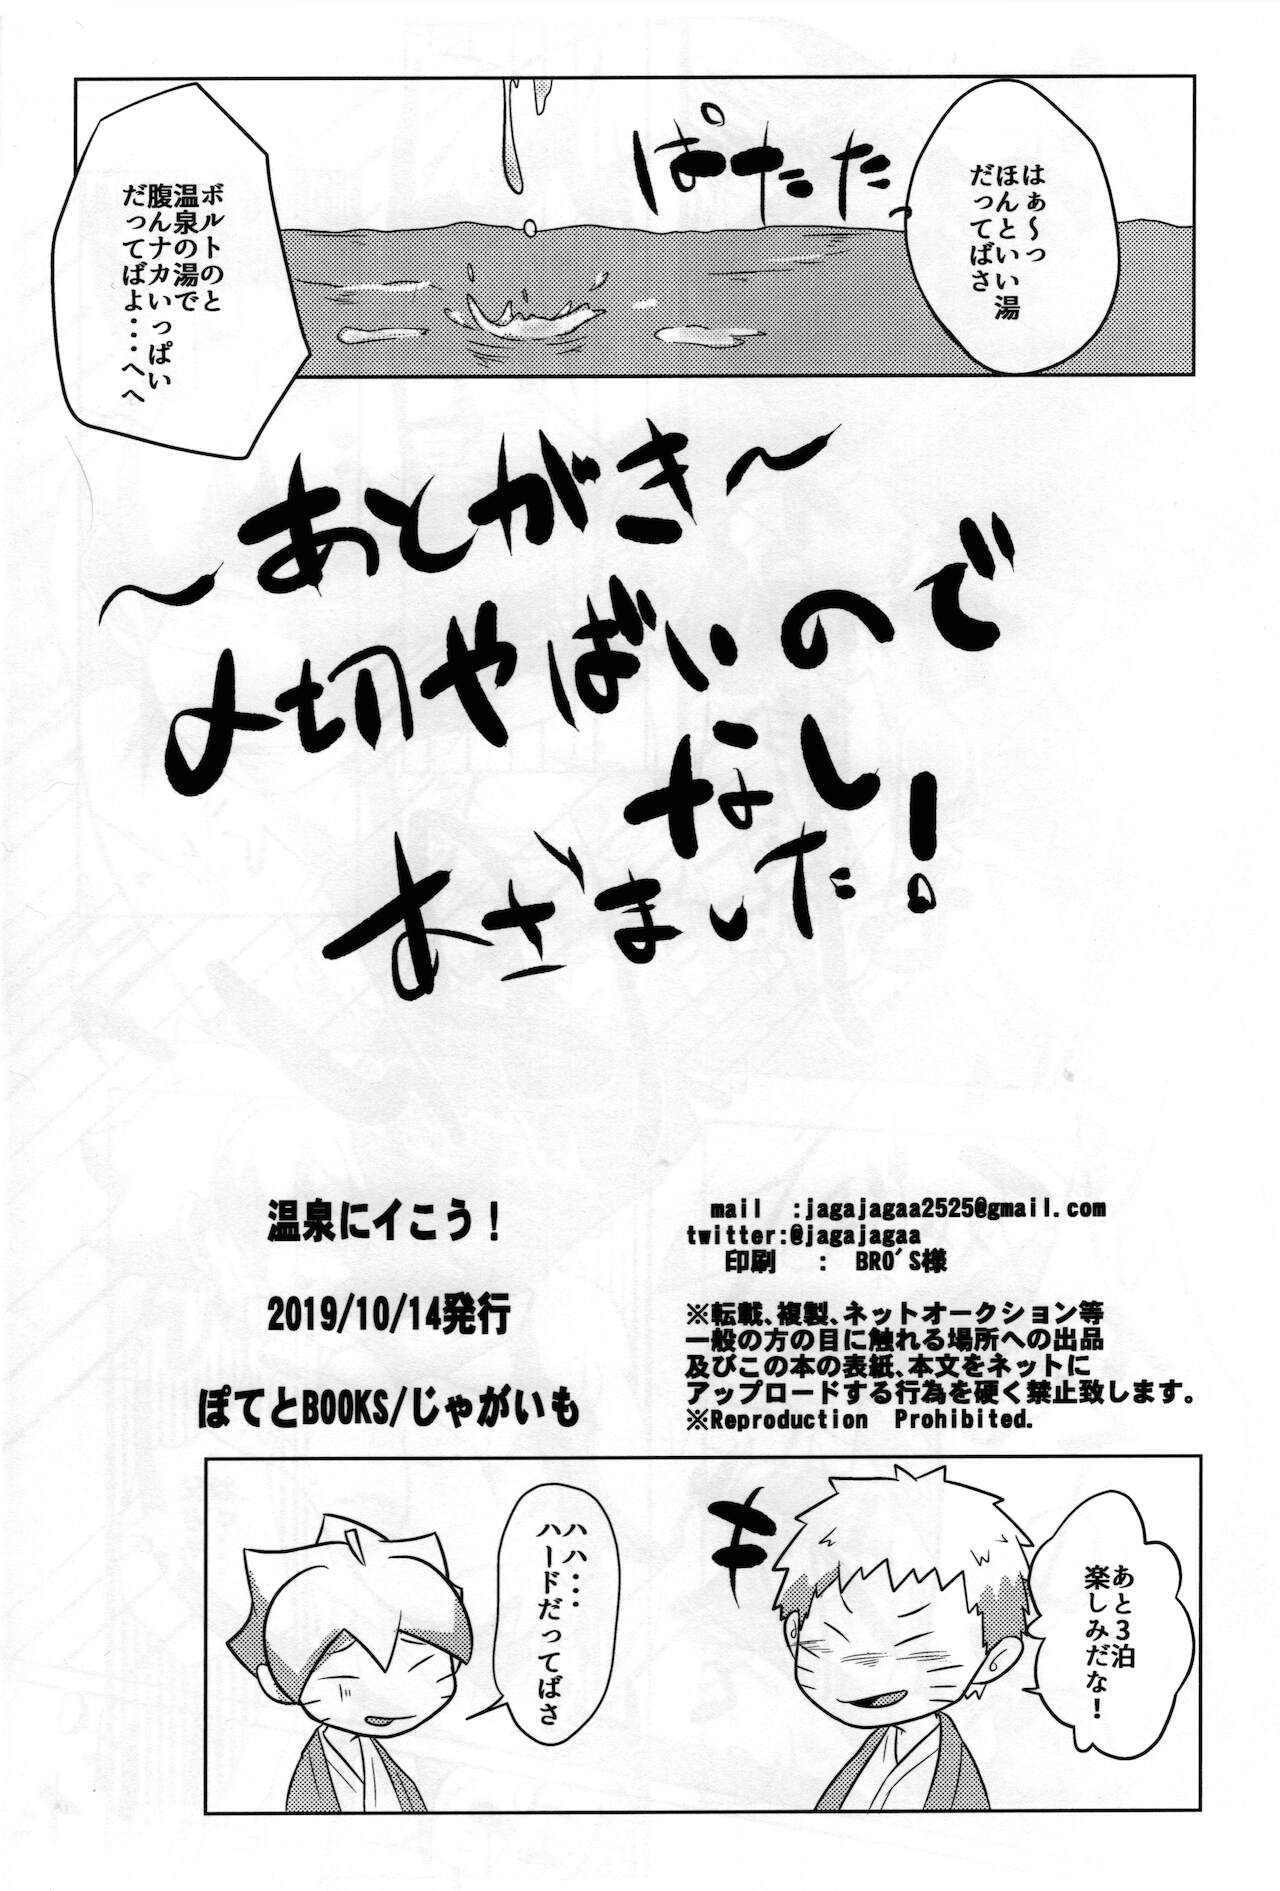 はぁ～っ
ほんといい湯
だってばさ
ぱたたっ
～あとがき～
〆切やばいので
なし
あざました！
温泉にイこう！
2019/10/14発行
ぽてとBOOKS/じゃがいも
mail :jagajagaa2525@gmail.com
twitter:@jagajagaa
印刷 ： BRO'S様
※転載、複製、ネットオークション等
一般の方の目に触れる場所への出品
及びこの本の表紙、本文をネットに
アップロードする行為を硬く禁止致します。
※Reproduction Prohibited.
あと3泊
楽しみだな！
ハハ・・・
ハードだってばさ